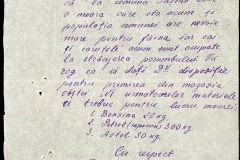 că la comuna
o moară care sta acum și
populația comunei are nevoie
mare pentru făină iar caii
și carutele acum sunt ocupate
la strângerea porumbului Vă
rog ca să dați D-stră dispoziție
pentru primirea din magazia
a următoarelor materiale
ce trebuie pentru lucru morei.
1. Benzina 20 kg
2. Petrol ( ) 300 kg
3. Avtol 30 kg
Cu respect